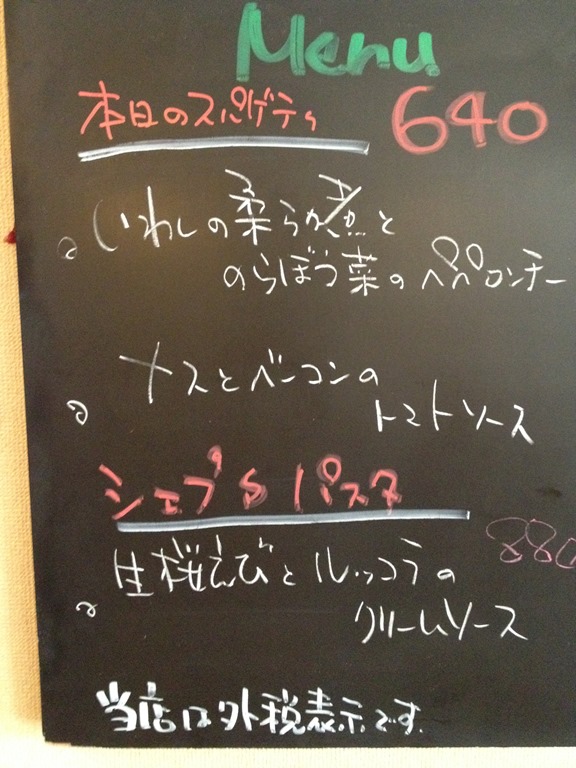 Menu
本日のスパゲティ 640
いわしの柔らか煮と
のらぼう菜のペペロンチー
ナスとベーコンの
トマトソース
シェフ's パスタ
880
生桜えびとルッコラの
クリームソース
当店は外税表示です。